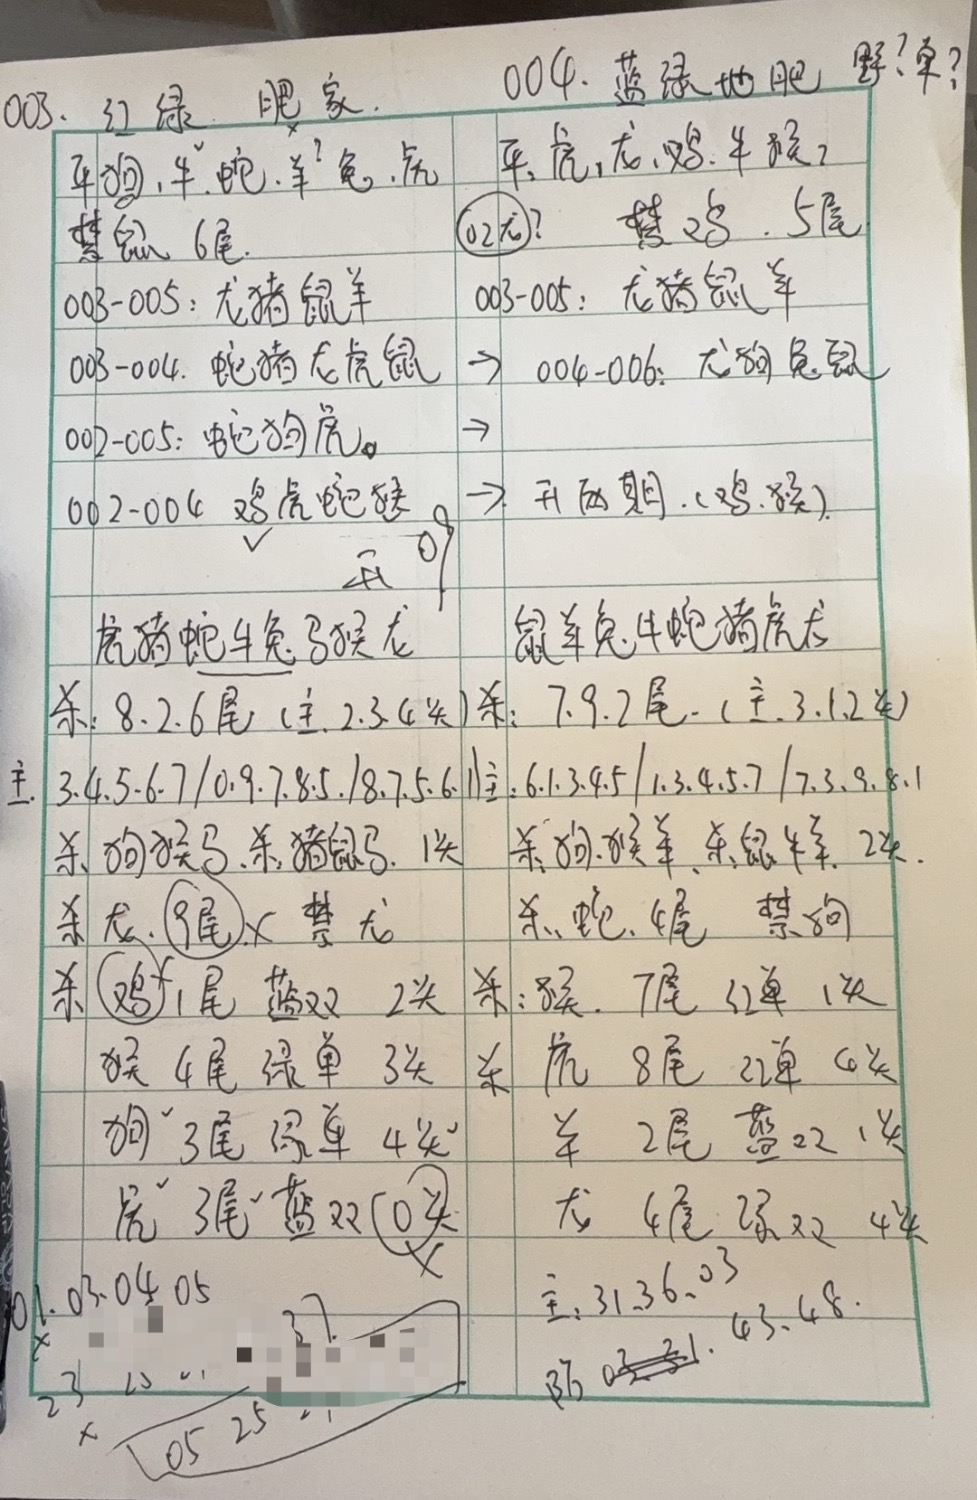 003. 红绿 肥家.
平狗.牛.蛇.羊?兔.虎
禁鼠 6尾.
003-005: 龙猪鼠羊
003-004. 蛇猪龙虎鼠 →
002-005: 蛇狗虎。 →
002-004 鸡虎蛇猴 →
开 09
虎猪蛇牛兔马猴龙
杀: 8.2.6尾 (主.2.3.4头)
主. 3.4.5.6.7/0.9.7.8.5./8.7.5.6.1
杀狗猴马.杀猪鼠马. 1头
杀龙.9尾.x 禁龙
杀鸡x1尾 蓝双 2头
猴4尾 绿单 3头
狗 3尾 绿单 4头
虎 3尾 蓝双 0头
x
01.03.04 05
x
37
23
x
05 25
004. 蓝绿地肥 野?单?
平.虎.龙.鸡.牛猴?
02龙? 禁鸡.5尾
003-005: 龙猪鼠羊
004-006: 龙狗兔鼠
开两期.(鸡.猴).
鼠羊兔牛蛇猪虎龙
杀: 7.9.2尾.(主.3.1.2头)
主: 6.1.3.4.5/1.3.4.5.7/7.3.9.8.1
杀.狗.猴羊.杀.鼠牛羊. 2头.
杀.蛇.4尾 禁狗
杀:猴. 7尾 红单 1头
杀 虎 8尾 红单 4头
羊 2尾 蓝双 1头
龙 4尾 绿双 4头
主: 31.36.03
防 43.48.